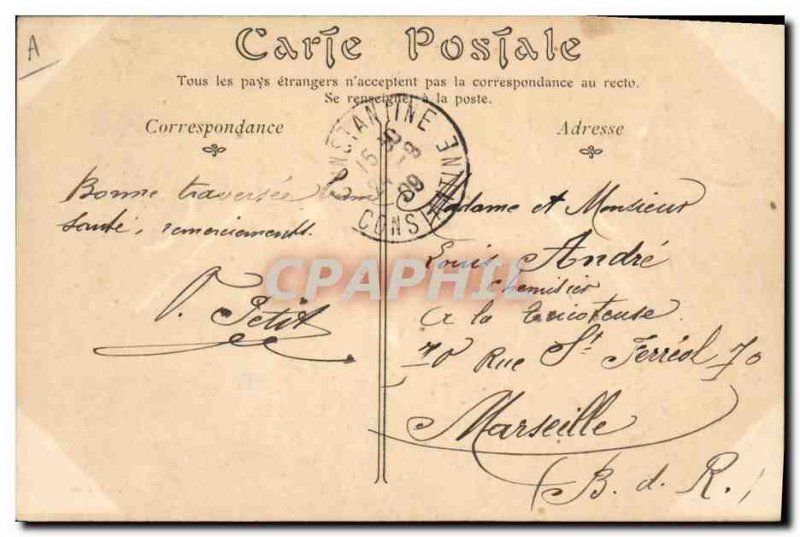 A
Carte Postale
Tous les pays étrangers n'acceptent pas la correspondance au recto.
Se renseigner à la poste.
Correspondance
Adresse
CONSTANTINE
CONSTANTINE
Bonne traversée bonne
santé, remerciements.
P. Petit
Madame et Monsieur
Louis André
chemisier
A la Tricoteuse
70 Rue St Ferréol 70
Marseille
B. d. R.
CPAPHIL